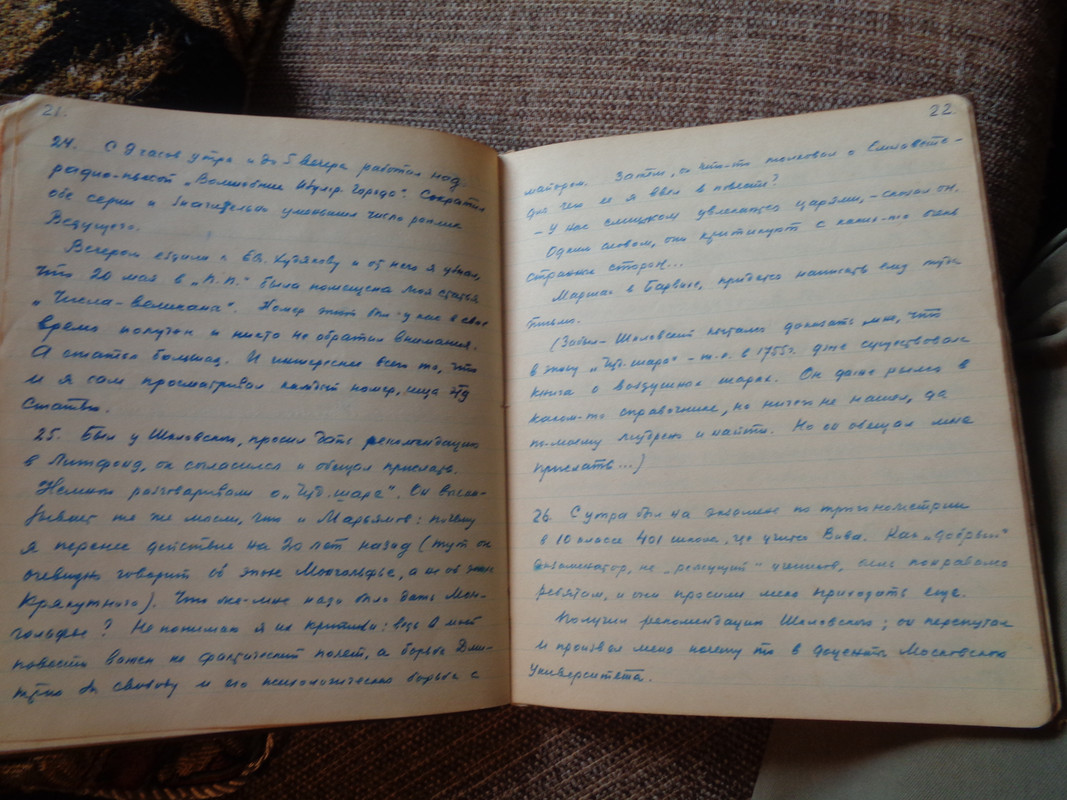 21.
24. С 9 часов утра и до 5 вечера работал над
радио-пьесой „Волшебник Изумр. Города“. Сократил
обе серии и значительно уменьшил число реплик
Ведущего.
Вечером ездили к Ев. Худякову и от него я узнал,
что 20 мая в „П.П.“ была помещена моя статья
„Числа-великаны“. Номер этот был у нас в свое
время получен и никто не обратил внимания.
А статья большая. И интереснее всего то, что
и я сам просматривал каждый номер, ища эту
статью.
25. Был у Шкловского, просил дать рекомендацию
в Литфонд, он согласился и обещал прислать.
Немного разговаривали о „Чуд. шаре“. Он выска-
зывает те же мысли, что и Марьямов: почему
я перенес действие на 20 лет назад (тут он
очевидно говорит об эпохе Монгольфье, а не об эпохе
Крякутного). Что же-мне надо было дать Мон-
гольфье? Не понимаю я их критики: ведь в моей
повести важен не фактический полет, а борьба Дми-
трия за свободу и его психологическая борьба с
22.
майором. Затем, он что-то толковал о Елизавете-
для чего ее я ввел в повесть?
– У нас слишком увлекаются царями, – сказал он.
Одним словом, они критикуют с каких-то очень
странных сторон...
Маршак в Барвихе, придется написать ему туда
письмо.
(Забыл – Шкловский пытался доказать мне, что
в эпоху „Чуд. шара“ – т.е. в 1755 г. уже существовала
книга о воздушных шарах. Он даже рылся в
каком-то справочнике, но ничего не нашел, да
по-моему мудрено и найти. Но он обещал мне
прислать...)
26. С утра был на экзамене по тригонометрии
в 10 классе 401 школы, где учится Вива. Как „добрый“
экзаменатор, не „режущий“ учеников, очень понравился
ребятам, и они просили меня приходить еще.
Получил рекомендацию Шкловского; он перепутал
и произвел меня почему то в доценты Московского
Университета.